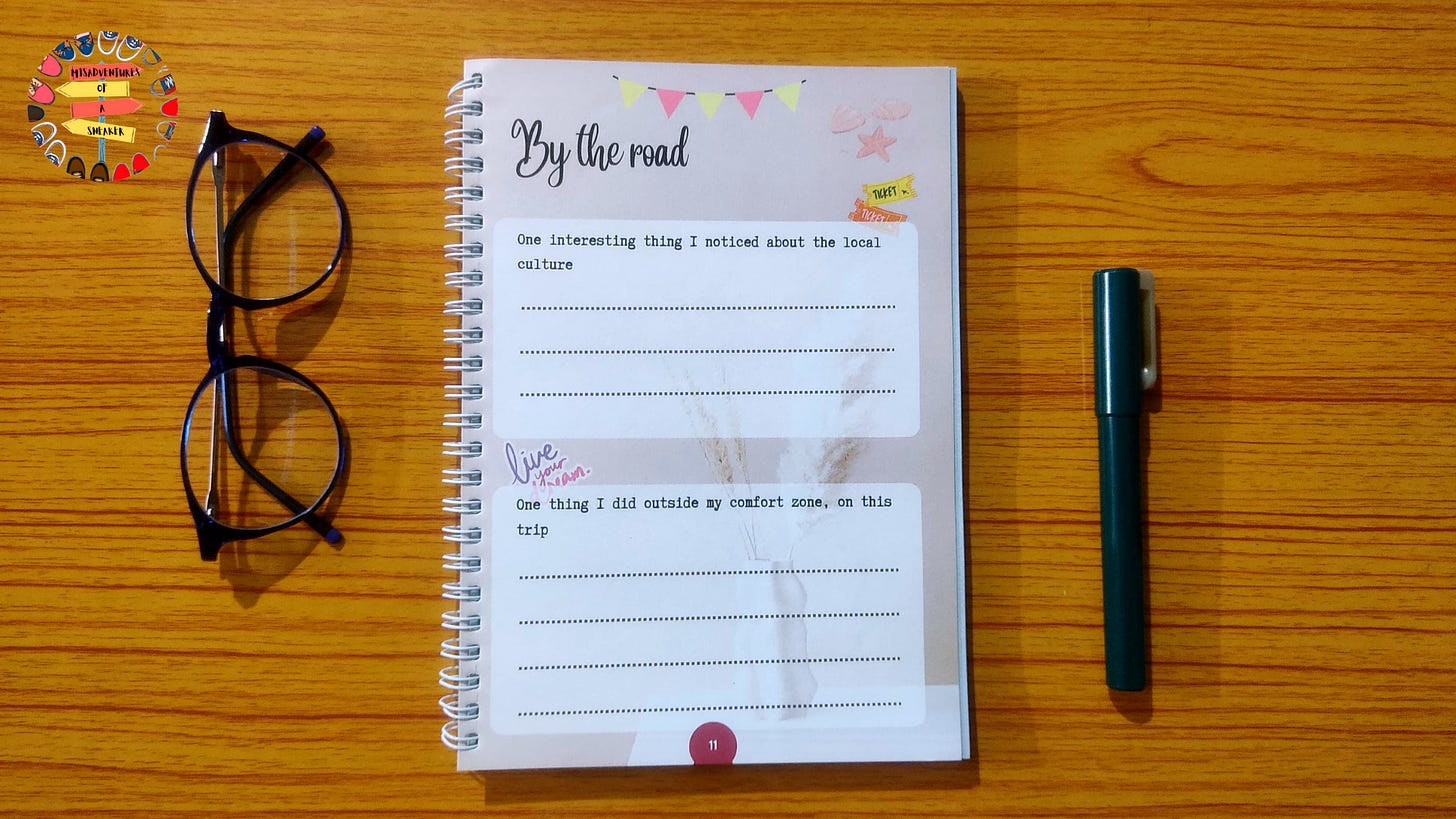 MISADVENTURES
OF
A
SNEAKER
By the road
TICKET
TICKET
One interesting thing I noticed about the local
culture
live
your
dream.
One thing I did outside my comfort zone, on this
trip
11